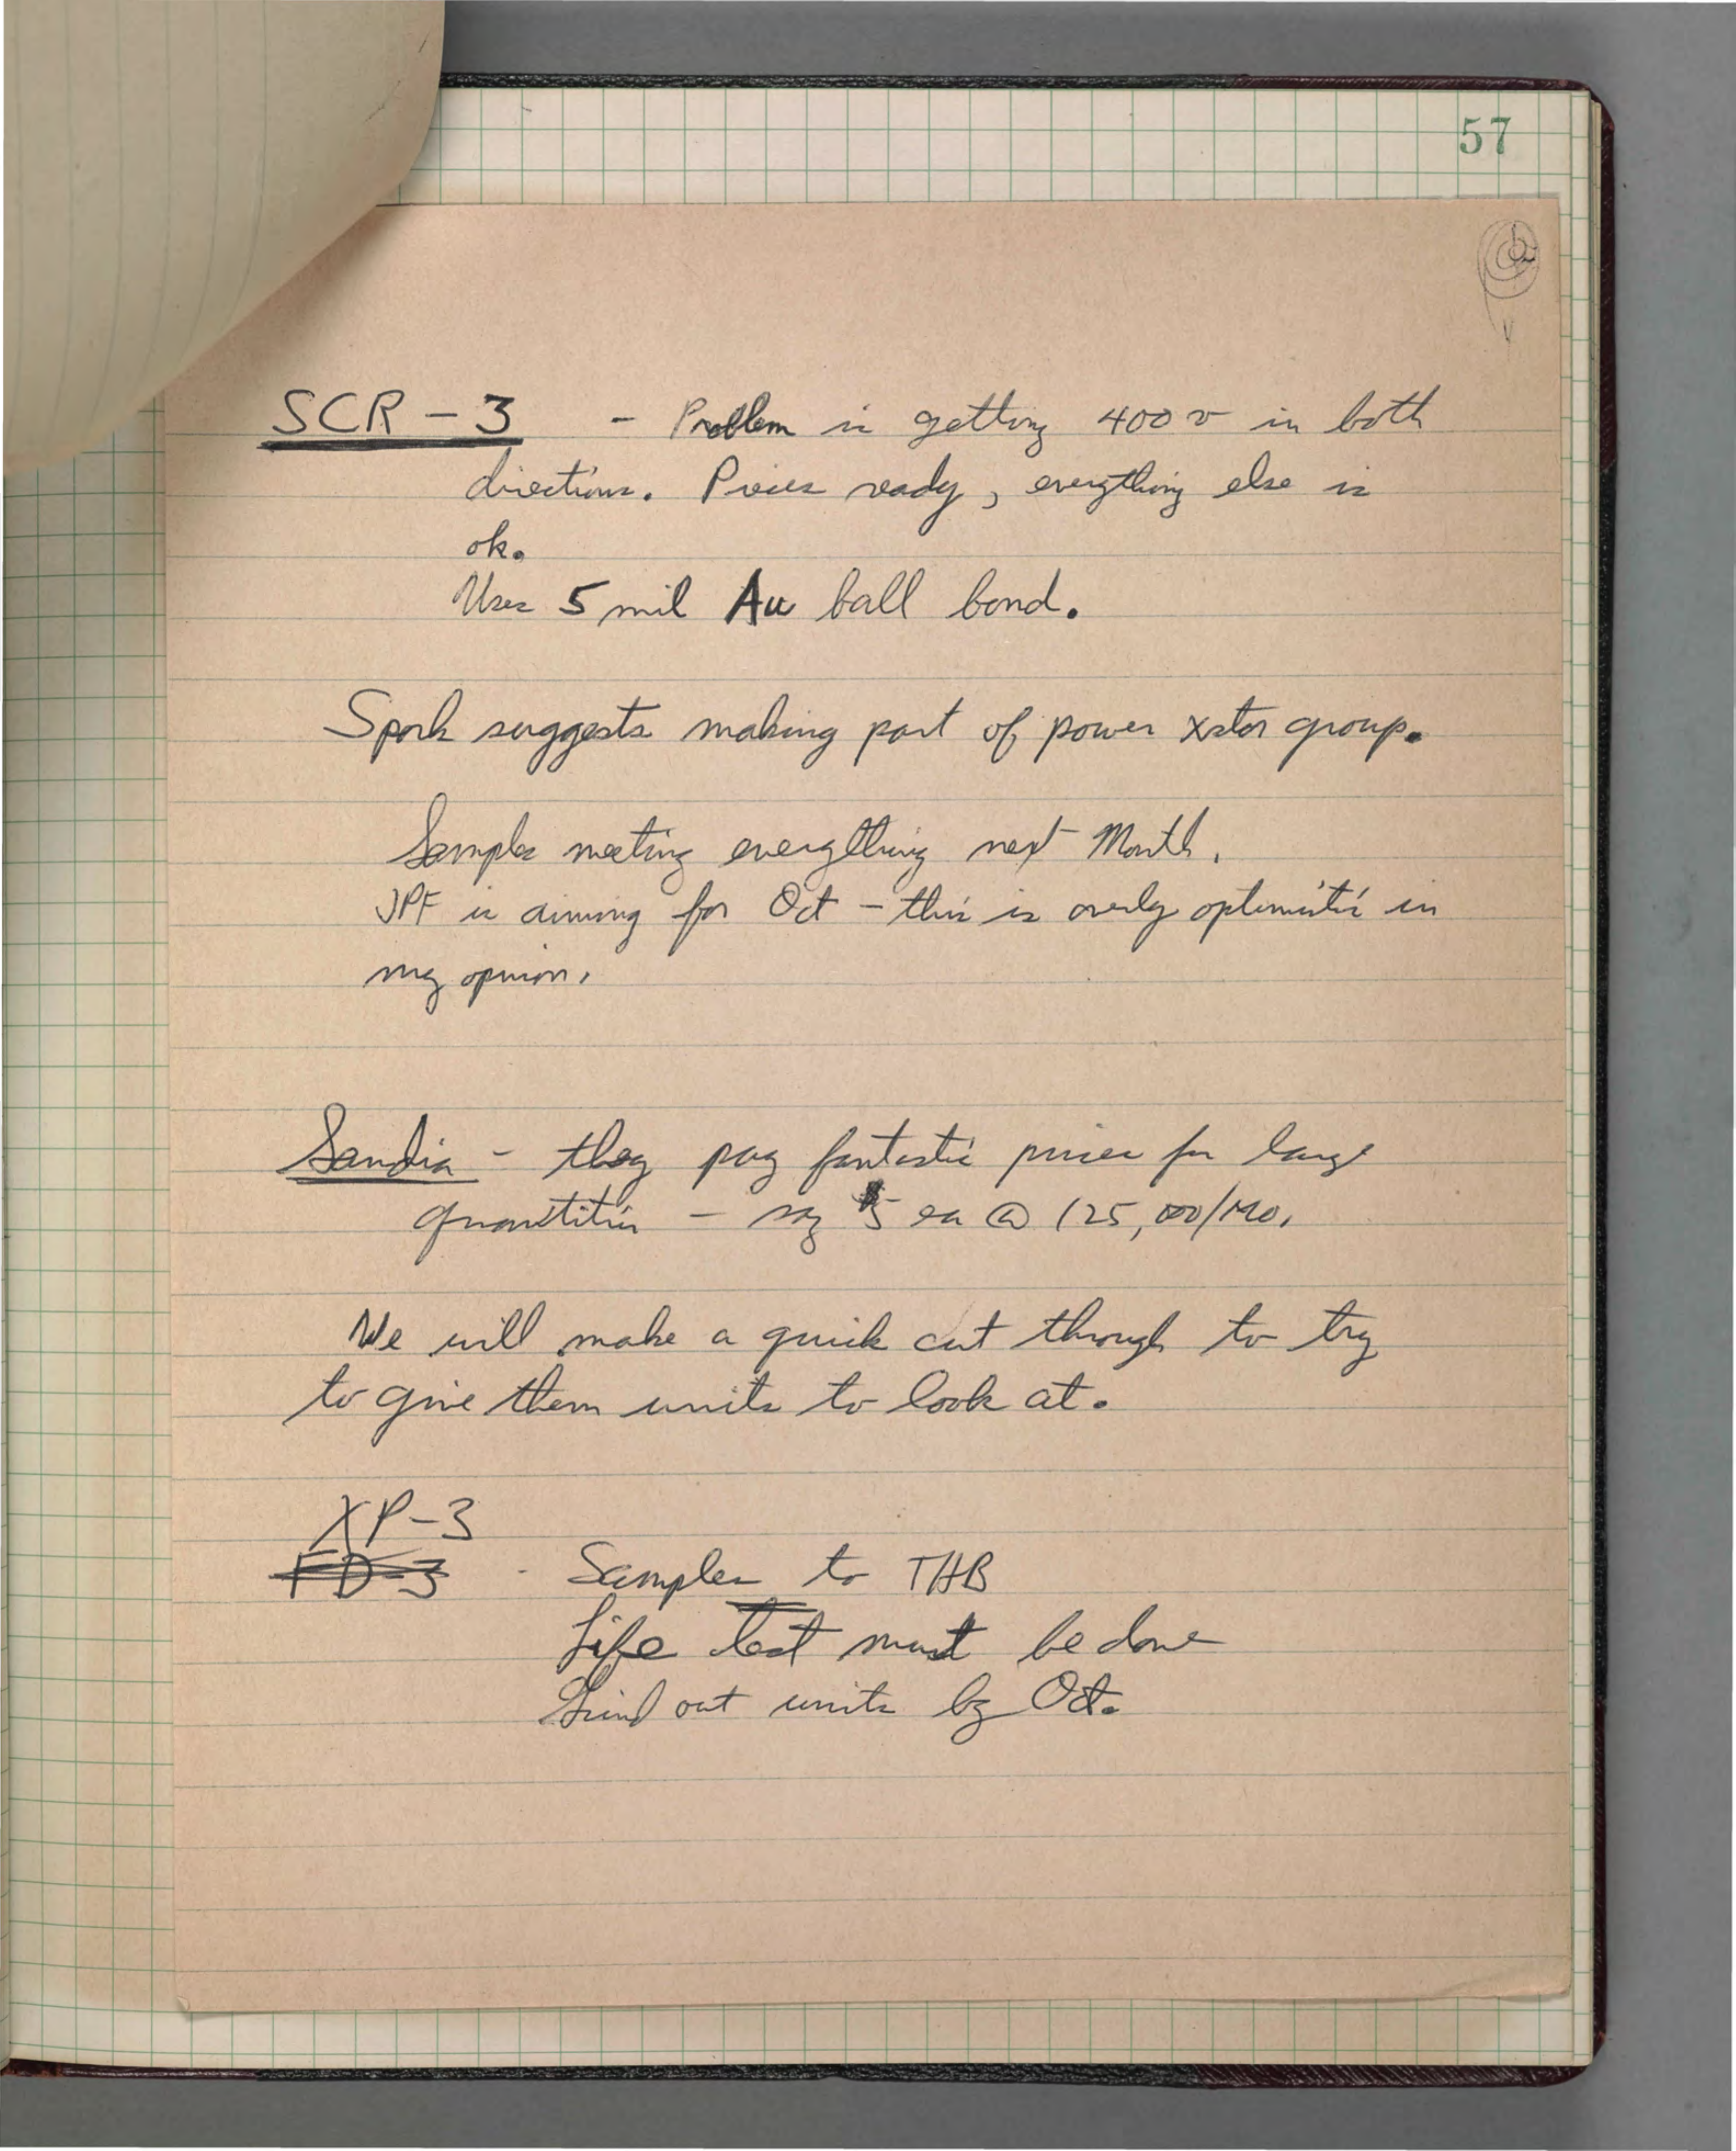 57
SCR - 3 - Problem is getting 400 v in both
directions. Pieces ready, everything else is
ok.
Uses 5 mil Au ball bond.
Spork suggests making part of power xstor group.
Samples meeting everything next Month.
JPF is aiming for Oct - this is overly optimistic in
my opinion.
Sandia - they pay fantastic prices for large
quantities - say $5 ea @ 125,000/Mo.
We will make a quick cut through to try
to give them units to look at.
XP-3
FD-3 - Samples to THB
Life Test must be done
Grind out units by Oct.